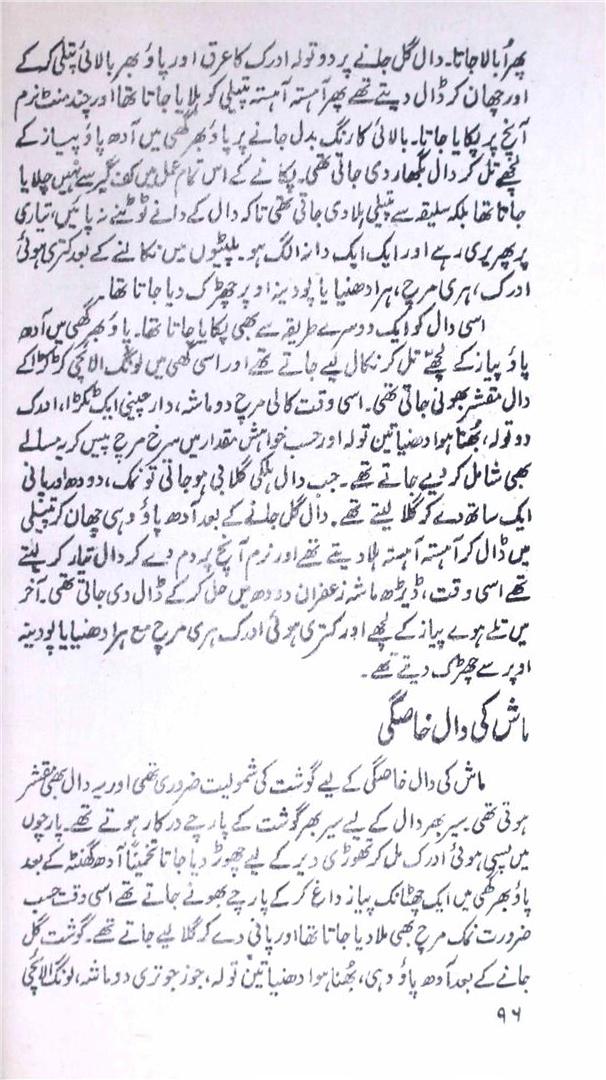 پھر اُبالا جاتا۔ دال گل جانے پر دو تولہ ادرک کا عرق اور پاؤ بھر بالائی پتلی کر کے
اور چھان کر ڈال دیتے تھے پھر آہستہ آہستہ پتیلی کو ہلایا جاتا تھا اور چند منٹ نرم
آنچ پر پکایا جاتا۔ بالائی کا رنگ بدل جانے پر پاؤ بھر گھی میں آدھ پاؤ پیاز کے
لچھے تل کر دال بگھار دی جاتی تھی۔ پکانے کے اس تمام عمل میں کف گیر سے نہیں چلایا
جاتا تھا بلکہ سلیقہ سے پتیلی ہلا دی جاتی تھی تاکہ دال کے دانے ٹوٹنے نہ پائیں، تیاری
پر پھریری رہے اور ایک ایک دانہ الگ ہو۔ پلیٹوں میں نکالنے کے بعد کتری ہوئی
ادرک، ہری مرچ، ہرا دھنیا یا پودینہ اوپر چھڑک دیا جاتا تھا۔
اسی دال کو ایک دوسرے طریقہ سے بھی پکایا جاتا تھا۔ پاؤ بھر گھی میں آدھ
پاؤ پیاز کے لچھے تل کر نکال لیے جاتے تھے اور اسی گھی میں لونگ الائچی کڑکڑا کے
دال مقشر بھونی جاتی تھی۔ اسی وقت کالی مرچ دو ماشہ، دار چینی ایک ٹکڑا، ادرک
دو تولہ، بُھنا ہوا دھنیا تین تولہ اور حسب خواہش مقدار میں سرخ مرچ پیس کر یہ مسالے
بھی شامل کر لیے جاتے تھے۔ جب دال ہلکی گلابی ہو جاتی تو نمک، دودھ اور پانی
ایک ساتھ دے کر گلا لیتے تھے۔ دال گل جانے کے بعد آدھ پاؤ دہی چھان کر پتیلی
میں ڈال کر آہستہ آہستہ ہلا دیتے تھے اور نرم آنچ پر دم دے کر دال تیار کر لیتے
تھے اسی وقت، ڈیڑھ ماشہ زعفران دودھ میں حل کر کے ڈال دی جاتی تھی۔ آخر
میں تلے ہوے پیاز کے لچھے اور کتری ہوئی ادرک ہری مرچ مع ہرا دھنیا یا پودینہ
اوپر سے چھڑک دیتے تھے۔
ماش کی دال خاصگی
ماش کی دال خاصگی کے لیے گوشت کی شمولیت ضروری تھی اور یہ دال بھی مقشر
ہوتی تھی۔ سیر بھر دال کے لیے سیر بھر گوشت کے پارچے درکار ہوتے تھے۔ پارچوں
میں پسی ہوئی ادرک مل کر تھوڑی دیر کے لیے چھوڑ دیا جاتا تخمیناً آدھ گھنٹہ کے بعد
پاؤ بھر گھی میں ایک چھٹانک پیاز داغ کر کے پارچے بھونے جاتے تھے اسی وقت حسب
ضرورت نمک مرچ بھی ملا دیا جاتا تھا اور پانی دے کر گلا لیے جاتے تھے۔ گوشت گل
جانے کے بعد آدھ پاؤ دہی، بُھنا ہوا دھنیا تین تولہ، جوز جوتری دو ماشہ، لونگ الائچی
۹۶